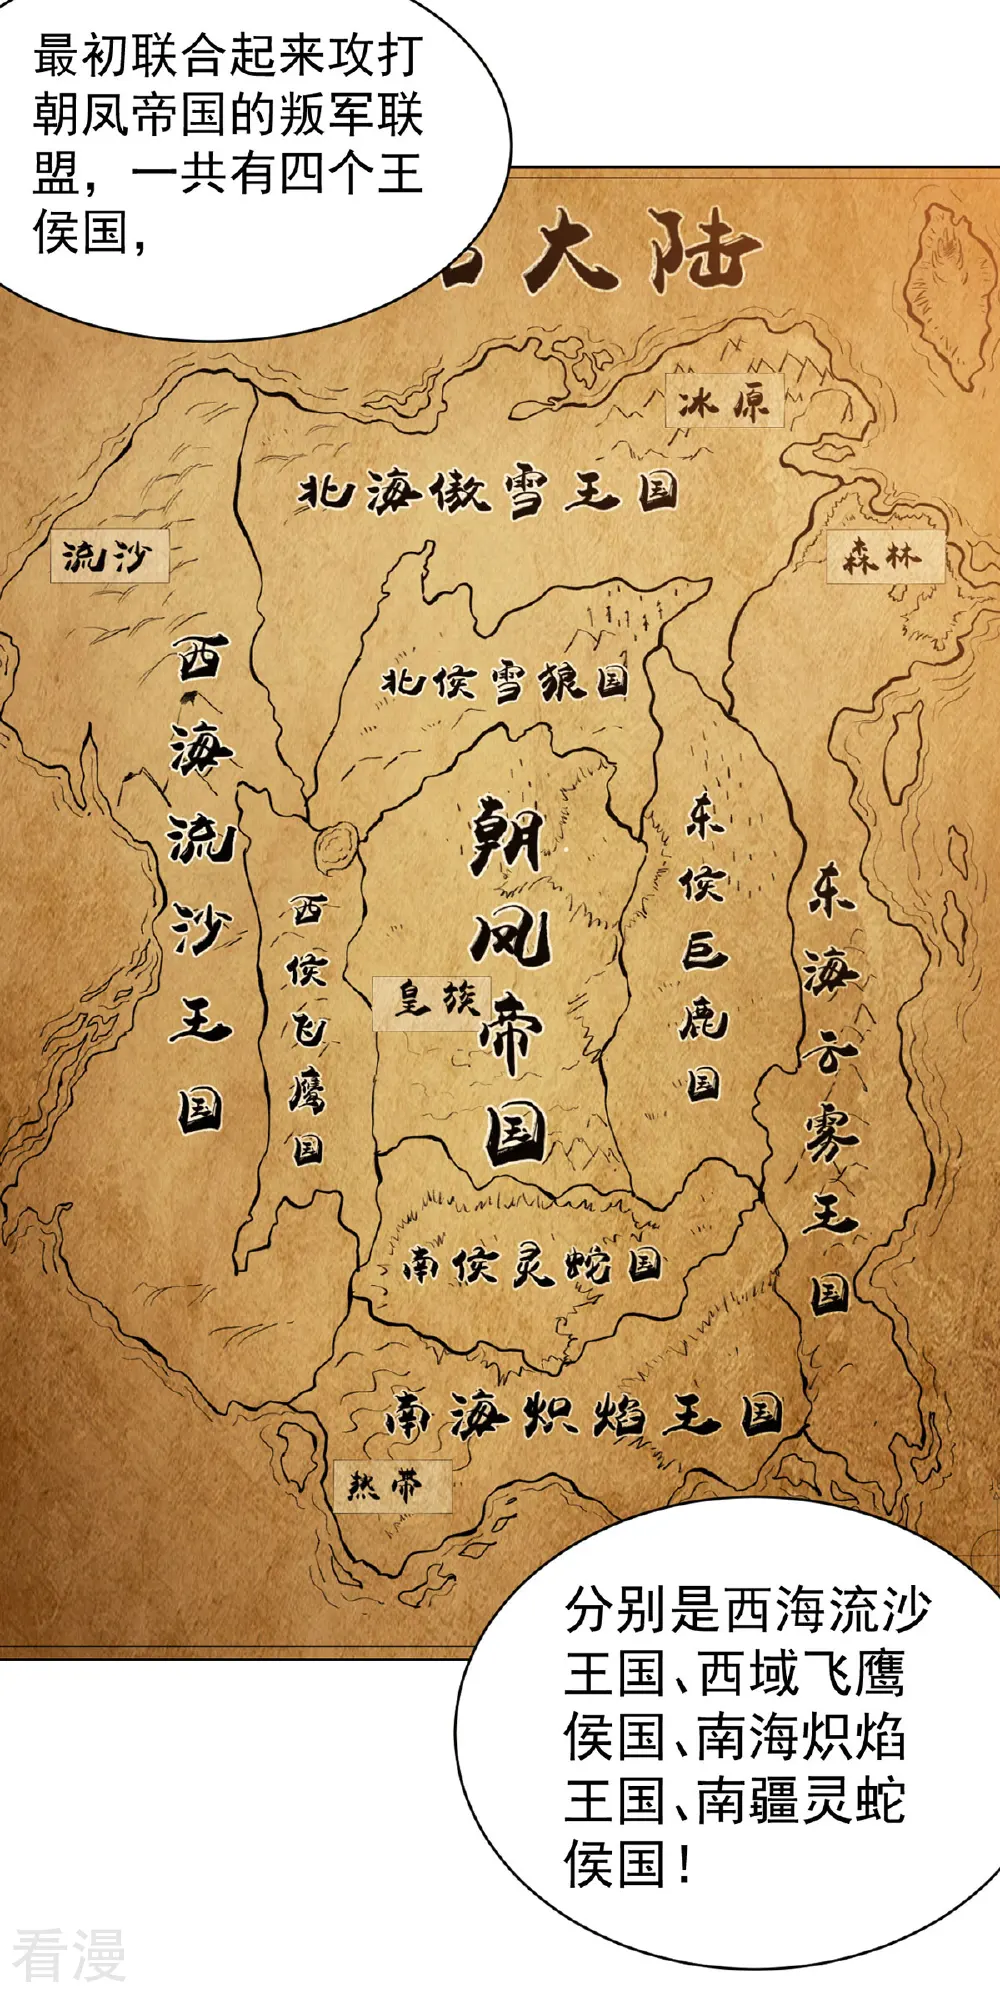 最初联合起来攻打
朝凤帝国的叛军联
盟，一共有四个王
侯国，
大陆
冰原
北海傲雪王国
流沙
森林
西海流沙王国
北侯雪狼国
朝凤帝国
东侯巨鹿国
东海云雾王国
西侯飞鹰国
皇族
南侯灵蛇国
南海炽焰王国
热带
分别是西海流沙
王国、西域飞鹰
侯国、南海炽焰
王国、南疆灵蛇
侯国！
看漫